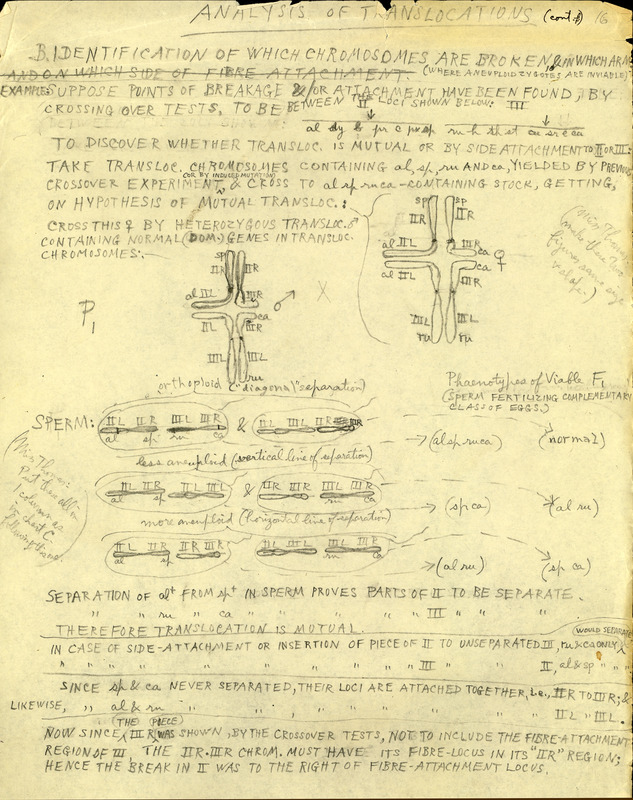 ANALYSIS OF TRANSLOCATIONS (cont.d) 16
B. IDENTIFICATION OF WHICH CHROMOSOMES ARE BROKEN & IN WHICH ARM
AND ON WHICH SIDE OF FIBRE ATTACHMENT. (WHERE ANEUPLOID ZYGOTES ARE INVIABLE)
EXAMPLE: SUPPOSE POINTS OF BREAKAGE &/OR ATTACHMENT HAVE BEEN FOUND, BY
CROSSING OVER TESTS, TO BE BETWEEN LOCI SHOWN BELOW:
II III
al dy b pr c px sp ru h th st cu sr e ca
TO DISCOVER WHETHER TRANSLOC. IS MUTUAL OR BY SIDE ATTACHMENT TO II OR III:
TAKE TRANSLOC. CHROMOSOMES CONTAINING al, sp, ru AND ca, YIELDED BY PREVIOUS
(OR BY INDUCED MUTATION)
CROSSOVER EXPERIMENT, & CROSS TO al sp ru ca-CONTAINING STOCK, GETTING,
ON HYPOTHESIS OF MUTUAL TRANSLOC.:
CROSS THIS ♀ BY HETEROZYGOUS TRANSLOC. ♂
CONTAINING NORMAL (DOM.) GENES IN TRANSLOC.
CHROMOSOMES:
sp sp
II R II R
al II L III R ca ♀
al II L III R ca
III L III L
ru ru
P1
sp
II R II R
al II L III R
II L III R ca
III L III L
ru
♂ X
orthoploid ("diagonal" separation)
Phaenotypes of Viable F1
(SPERM FERTILIZING COMPLEMENTARY
CLASS OF EGGS.)
SPERM: II L II R III L III R & II L III L II R III R
al sp ru ca
(al sp ru ca) (normal)
less aneuploid (vertical line of separation)
II L II R II L III L & II R III R III L III R
al sp ru ca
(sp ca) (al ru)
more aneuploid (horizontal line of separation)
II L II R II R III R II L III L III L III R
al sp ru ca
(al ru) (sp ca)
SEPARATION OF al+ FROM sp+ IN SPERM PROVES PARTS OF II TO BE SEPARATE.
" " ru " ca " " " " " III " "
THEREFORE TRANSLOCATION IS MUTUAL.
WOULD SEPARATE
IN CASE OF SIDE-ATTACHMENT OR INSERTION OF PIECE OF II TO UNSEPARATED III, ru & ca ONLY
" " " " " " " " III " " II, al & sp " "
SINCE sp & ca NEVER SEPARATED, THEIR LOCI ARE ATTACHED TOGETHER, i.e., II R TO III R; &
LIKEWISE, " al & ru " " " " " " II L " III L.
(THE PIECE)
NOW SINCE III R WAS SHOWN, BY THE CROSSOVER TESTS, NOT TO INCLUDE THE FIBRE-ATTACHMENT
REGION OF III, THE II R·III R CHROM. MUST HAVE ITS FIBRE-LOCUS IN ITS "II R" REGION;
HENCE THE BREAK IN II WAS TO THE RIGHT OF FIBRE-ATTACHMENT LOCUS.